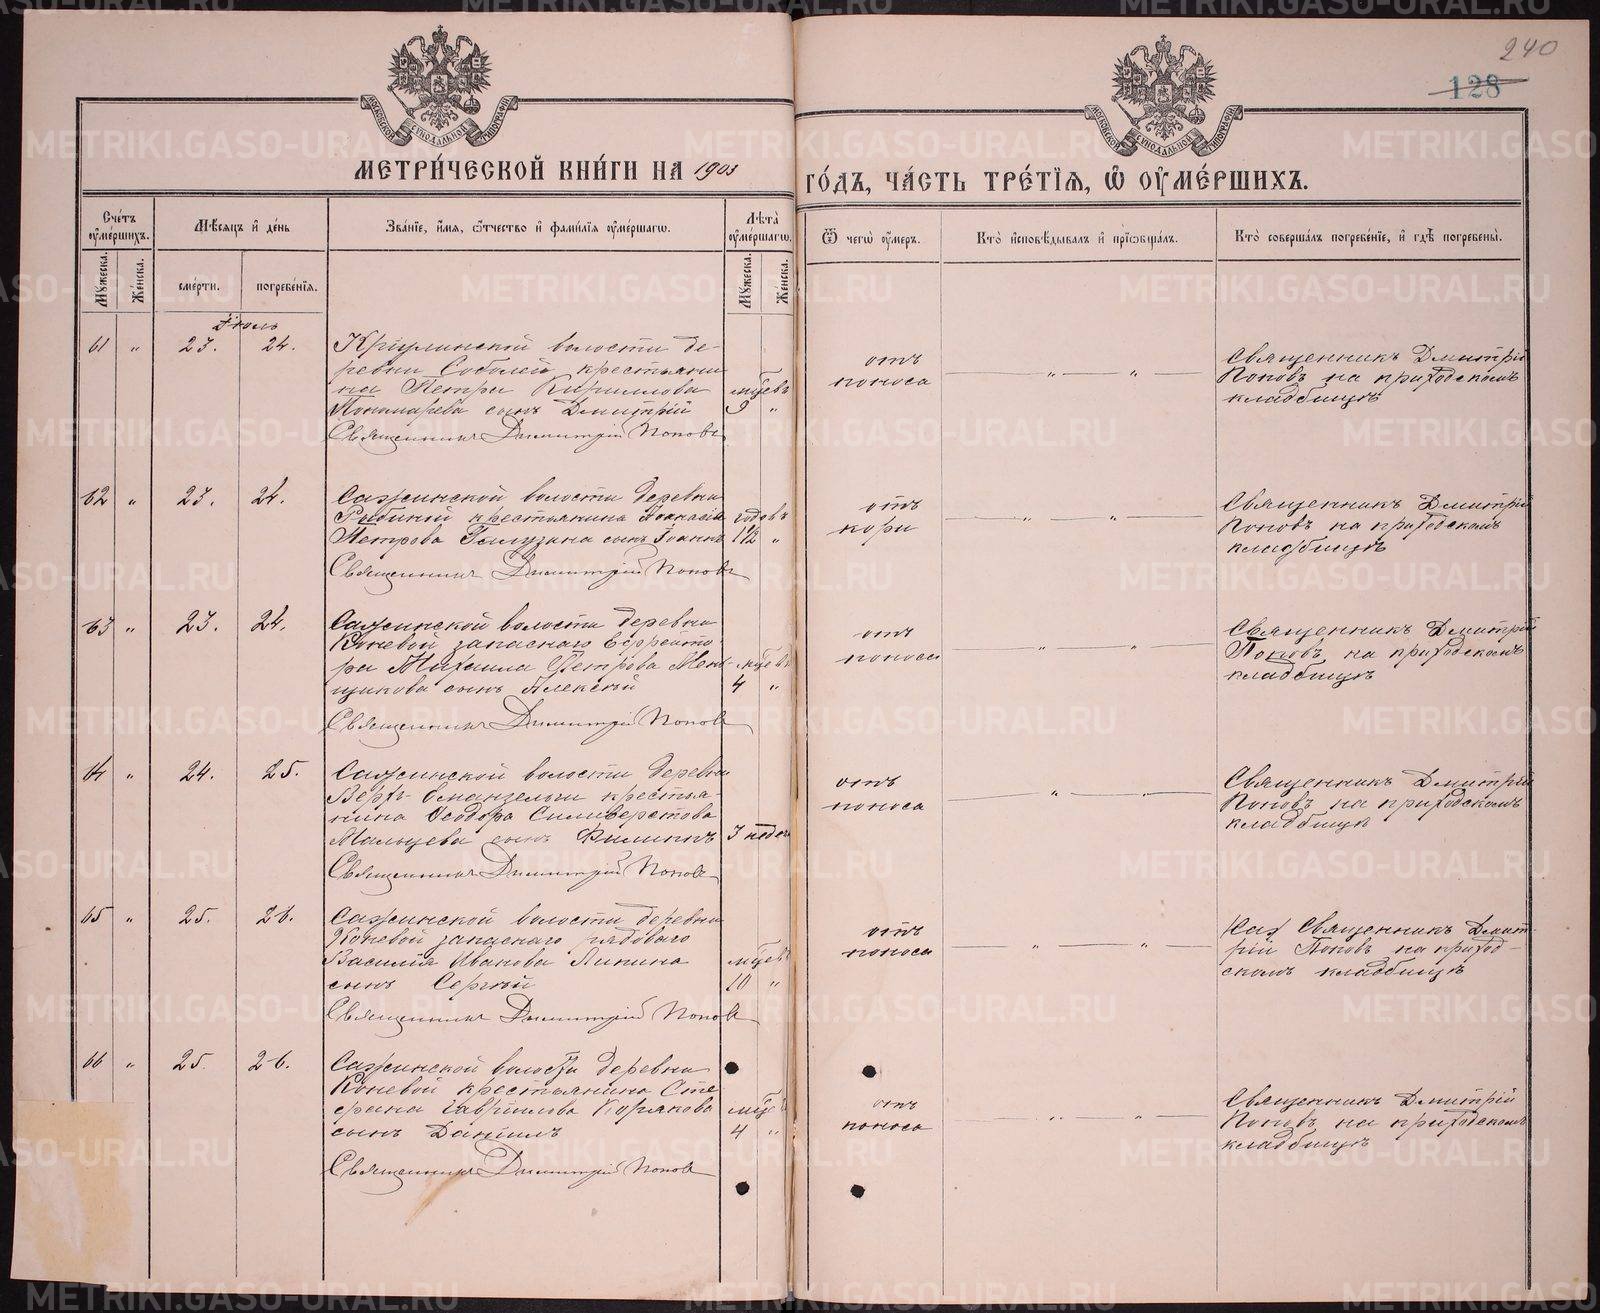 240
128
МОСКОВСКОЙ СѴНОДАЛЬНОЙ ТИПОГРАФІИ
МОСКОВСКОЙ СѴНОДАЛЬНОЙ ТИПОГРАФІИ
МЕТРИ́ЧЕСКОЙ КНИ́ГИ НА 1903 ГО́ДЪ, ЧА́СТЬ ТРЕ́ТІЯ, Ѽ ОУ҆МЕ́РШИХЪ.
Сче́тъ оу҆ме́ршихъ.
Мѣ́сяцъ и҆ де́нь
Зва́ніе, и҆́мя, ѻ҆́тчество и҆ фами́лія оу҆ме́ршагѡ.
Лѣ́та оу҆ме́ршагѡ.
Ѿ чегѡ̀ оу҆́меръ.
Кто̀ и҆сповѣ́дывалъ и҆ прїѡбща́лъ.
Кто̀ соверша́лъ погребе́ніе, и҆ гдѣ̀ погребены̀.
Му́жеска.
Же́нска.
сме́рти.
погребе́нія.
Му́жеска.
Же́нска.
Іюль
61 " 23. 24.
Криулинской волости де-
ревни Соболей крестьяни
на Петра Кириллова
Пономарева сынъ Дмитрій
Священникъ Димитрій Поповъ
мѣсяцевъ
9 "
отъ
поноса
" "
Священникъ Дмитрій
Поповъ на приходскомъ
кладбищѣ
62 " 23. 24.
Сажинской волости деревни
крестьянина
Петрова сынъ Іоаннъ
Священникъ Димитрій Поповъ
годовъ
1 1/2 "
отъ
кори
" "
Священникъ Дмитрій
Поповъ на приходскомъ
кладбищѣ
63 " 23. 24.
Сажинской волости деревни
Коневой запаснаго Ефрейто-
ра Михаила Петрова Мень-
щикова сынъ Алексѣй
Священникъ Димитрій Поповъ
4 "
отъ
поноса
" "
Священникъ Дмитрій
Поповъ на приходскомъ
кладбищѣ
64 " 24. 25.
Сажинской волости деревни
крестья-
нина Ѳеодора Силиверстова
Мальцева сынъ Филиппъ
Священникъ Димитрій Поповъ
3 недел
отъ
поноса
" "
Священникъ Дмитрій
Поповъ на приходскомъ
кладбищѣ
65 " 25. 26.
Сажинской волости деревни
Коневой запаснаго рядоваго
Василія Иванова Липина
сынъ Сергѣй
Священникъ Димитрій Поповъ
10 "
отъ
поноса
" "
Священникъ Дмит-
рій Поповъ на приход-
скомъ кладбищѣ
66 " 25. 26.
Сажинской волости деревни
Коневой крестьянина Сте
фана Гавріилова Корякова
сынъ Даніилъ
Священникъ Димитрій Поповъ
4 "
отъ
поноса
" "
Священникъ Дмитрій
Поповъ на приходскомъ
кладбищѣ
METRIKI.GASO-URAL.RU